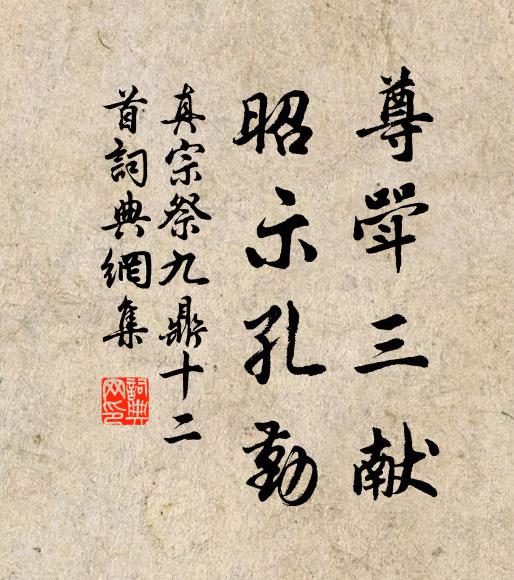 尊斝三献
昭示孔勤
真宗祭九鼎十二
首詞典網集
詞典网印